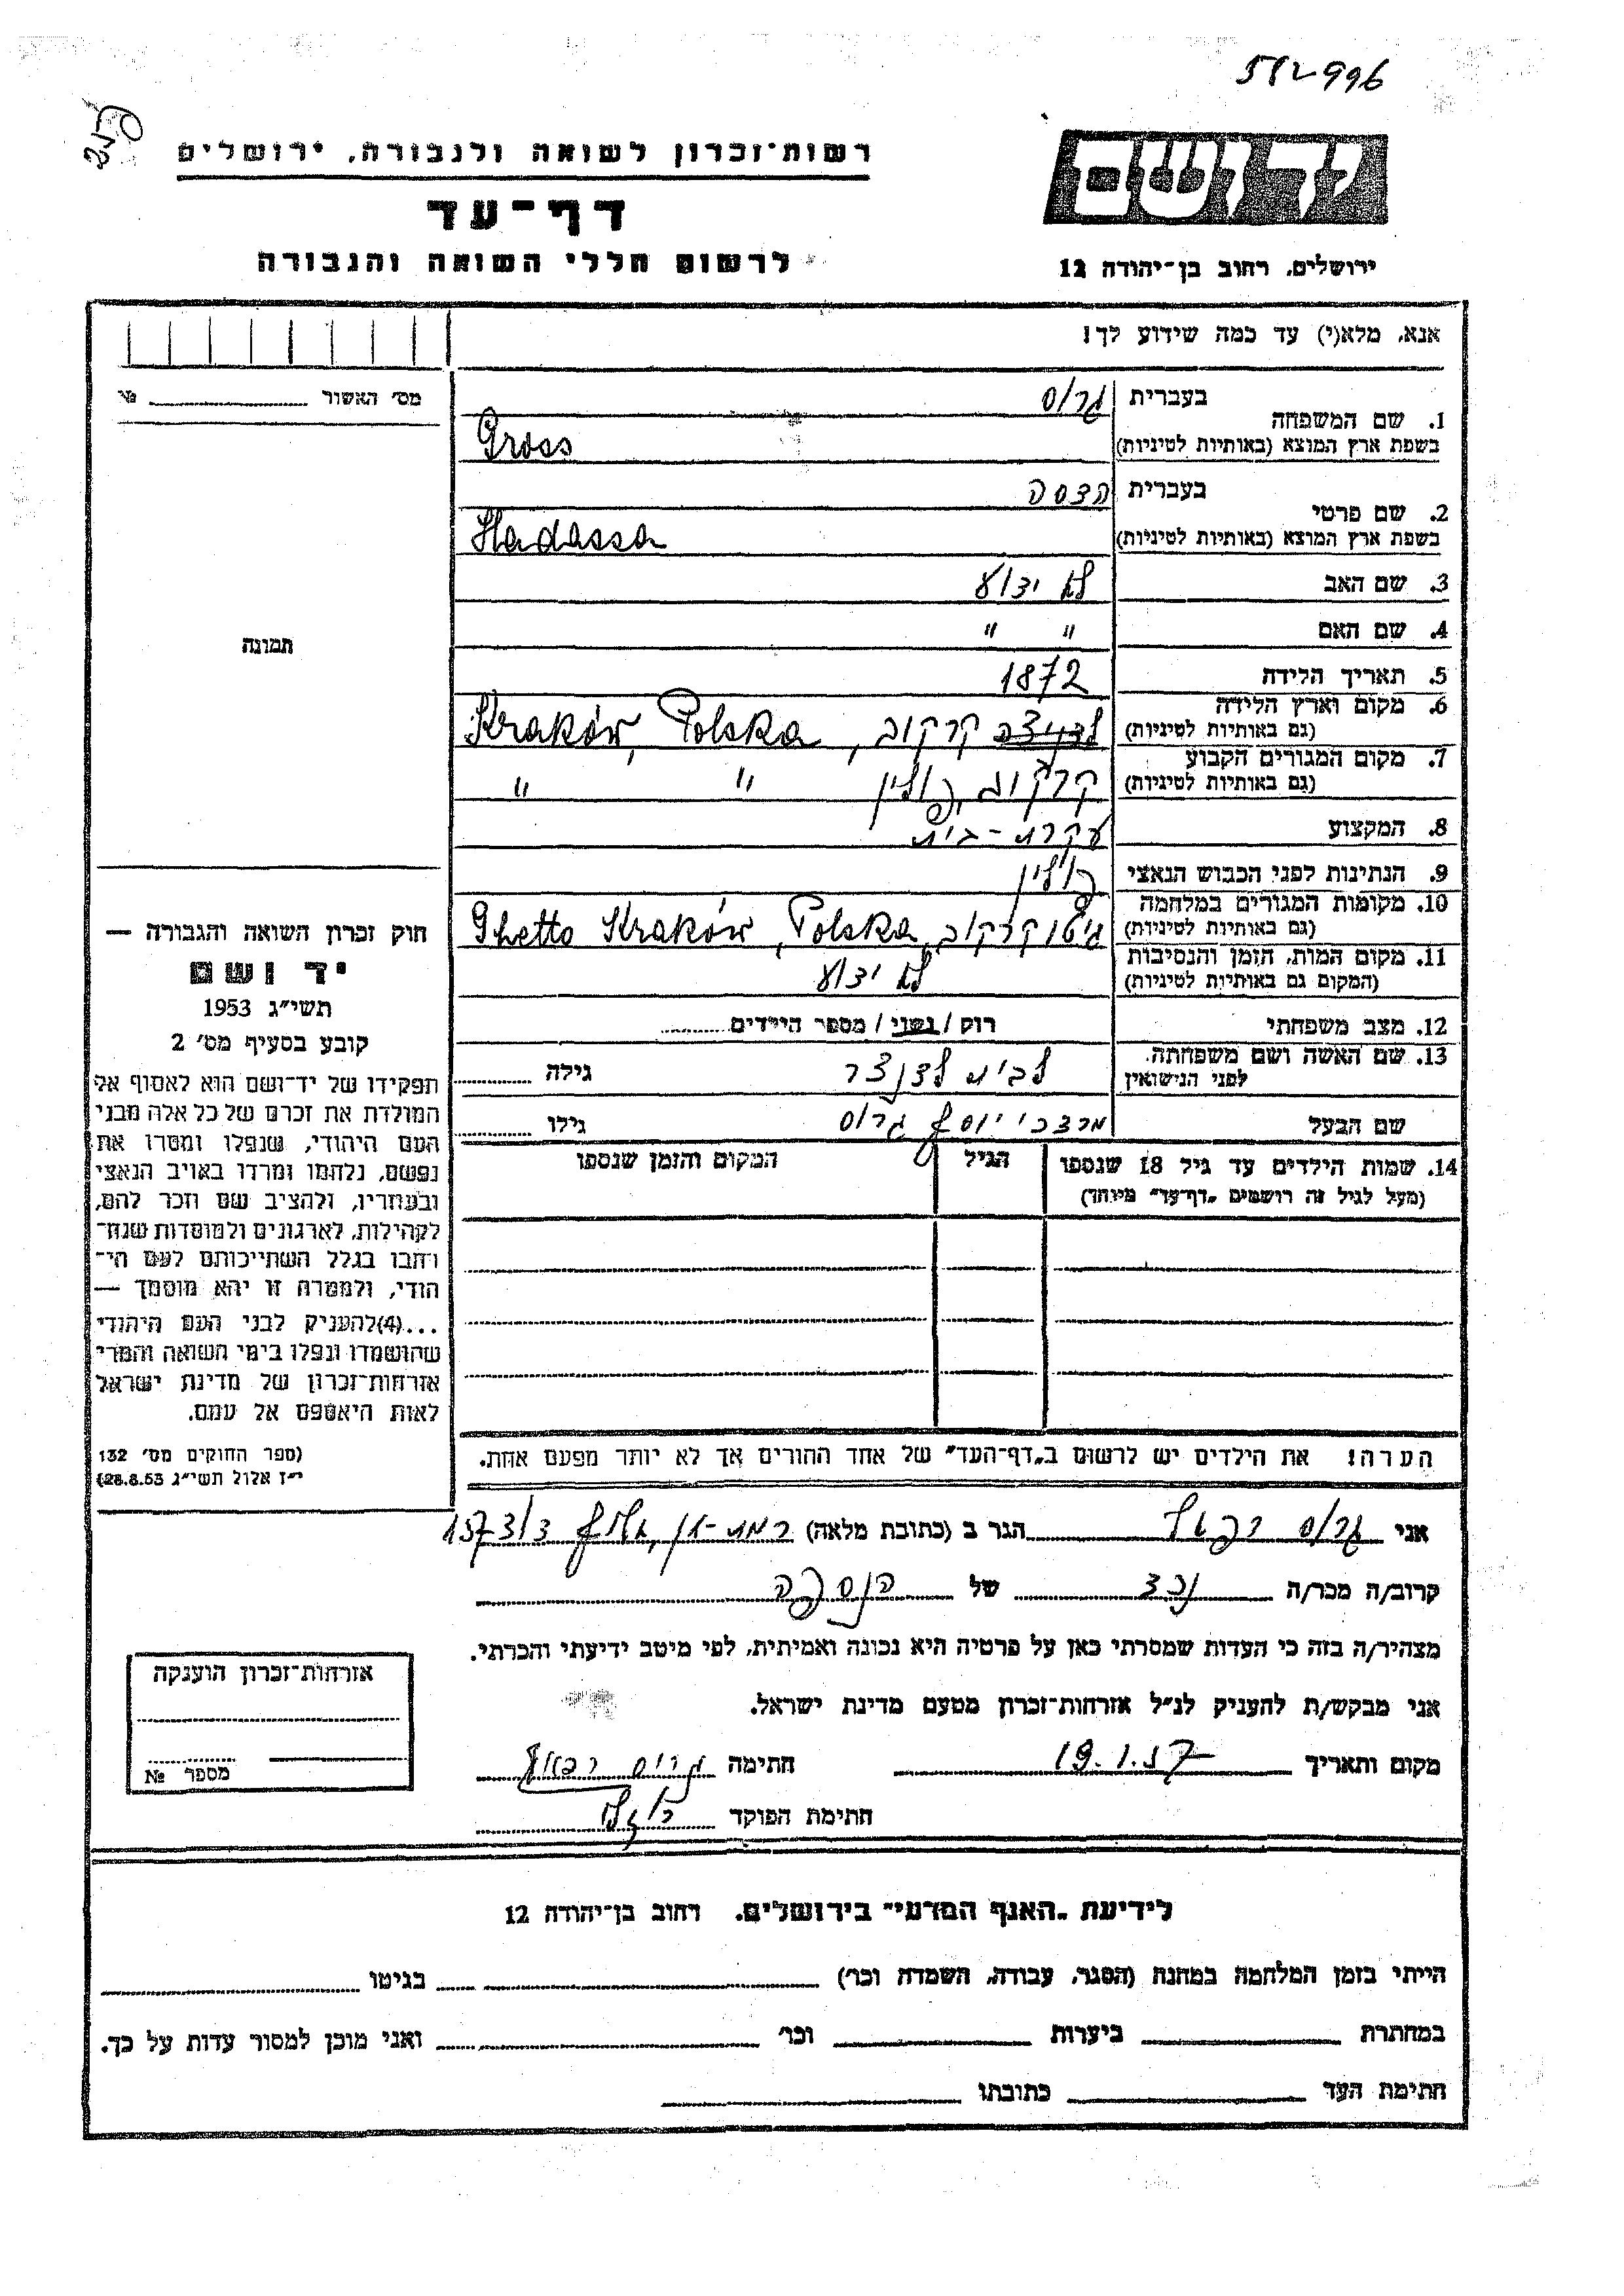 512996
רשות־זכרון לשואה ולגבורה, ירושלים
דף־עד
לרשום חללי השואה והגבורה
יד ושם
ירושלים, רחוב בן־יהודה 12
אנא, מלא(י) עד כמה שידוע לך!
מס׳ האשור №
1. שם המשפחה
בעברית גרוס
בשפת ארץ המוצא (באותיות לטיניות) Gross
2. שם פרטי
בעברית הדסה
בשפת ארץ המוצא (באותיות לטיניות) Hadassa
3. שם האב לא ידוע
4. שם האם " "
5. תאריך הלידה 1872
6. מקום וארץ הלידה
(גם באותיות לטיניות) קרקוב, Kraków, Polska
7. מקום המגורים הקבוע
(גם באותיות לטיניות) קרקוב, פולין " "
8. המקצוע עקרת-בית
9. הנתינות לפני הכבוש הנאצי פולין
10. מקומות המגורים במלחמה
(גם באותיות לטיניות) גיטו קרקוב, Ghetto Kraków, Polska
11. מקום המות, הזמן והנסיבות
(המקום גם באותיות לטיניות) לא ידוע
12. מצב משפחתי רוק / נשוי / מספר הילדים
13. שם האשה ושם משפחתה
לפני הנישואין לבית גילה
שם הבעל מרדכי יוסף גרוס גילו
14. שמות הילדים עד גיל 18 שנספו
(מעל לגיל זה רושמים „דף־עד" מיוחד)
הגיל
המקום והזמן שנספו
הערה! את הילדים יש לרשום ב„דף־העד" של אחד ההורים אך לא יותר מפעם אחת.
תמונה
חוק זכרון השואה והגבורה —
יד ושם
תשי"ג 1953
קובע בסעיף מס׳ 2
תפקידו של יד־ושם הוא לאסוף אל
המולדת את זכרם של כל אלה מבני
העם היהודי, שנפלו ומסרו את
נפשם, נלחמו ומרדו באויב הנאצי
ובעוזריו, ולהציב שם וזכר להם,
לקהילות, לארגונים ולמוסדות שנח־
רבו בגלל השתייכותם לעם הי־
הודי, ולמטרה זו יהא מוסמך —
...(4)להעניק לבני העם היהודי
שהושמדו ונפלו בימי השואה והמרי
אזרחות־זכרון של מדינת ישראל
לאות היאספם אל עמם.
(ספר החוקים מס׳ 132
י"ז אלול תשי"ג 28.8.53)
אני גרוס רפאל הגר ב (כתובת מלאה) רמת-גן,
קרוב/ה מכר/ה נכד של הנספה
מצהיר/ה בזה כי העדות שמסרתי כאן על פרטיה היא נכונה ואמיתית, לפי מיטב ידיעתי והכרתי.
אני מבקש/ת להעניק לנ"ל אזרחות־זכרון מטעם מדינת ישראל.
מקום ותאריך 19.1.57 חתימה גרוס רפאל
חתימת הפוקד
אזרחות־זכרון הוענקה
מספר №
לידיעת „האגף המדעי" בירושלים, רחוב בן־יהודה 12
הייתי בזמן המלחמה במחנה (הסגר, עבודה, השמדה וכו׳) בגיטו
במחתרת ביערות וכו׳ ואני מוכן למסור עדות על כך.
חתימת העד כתובתו